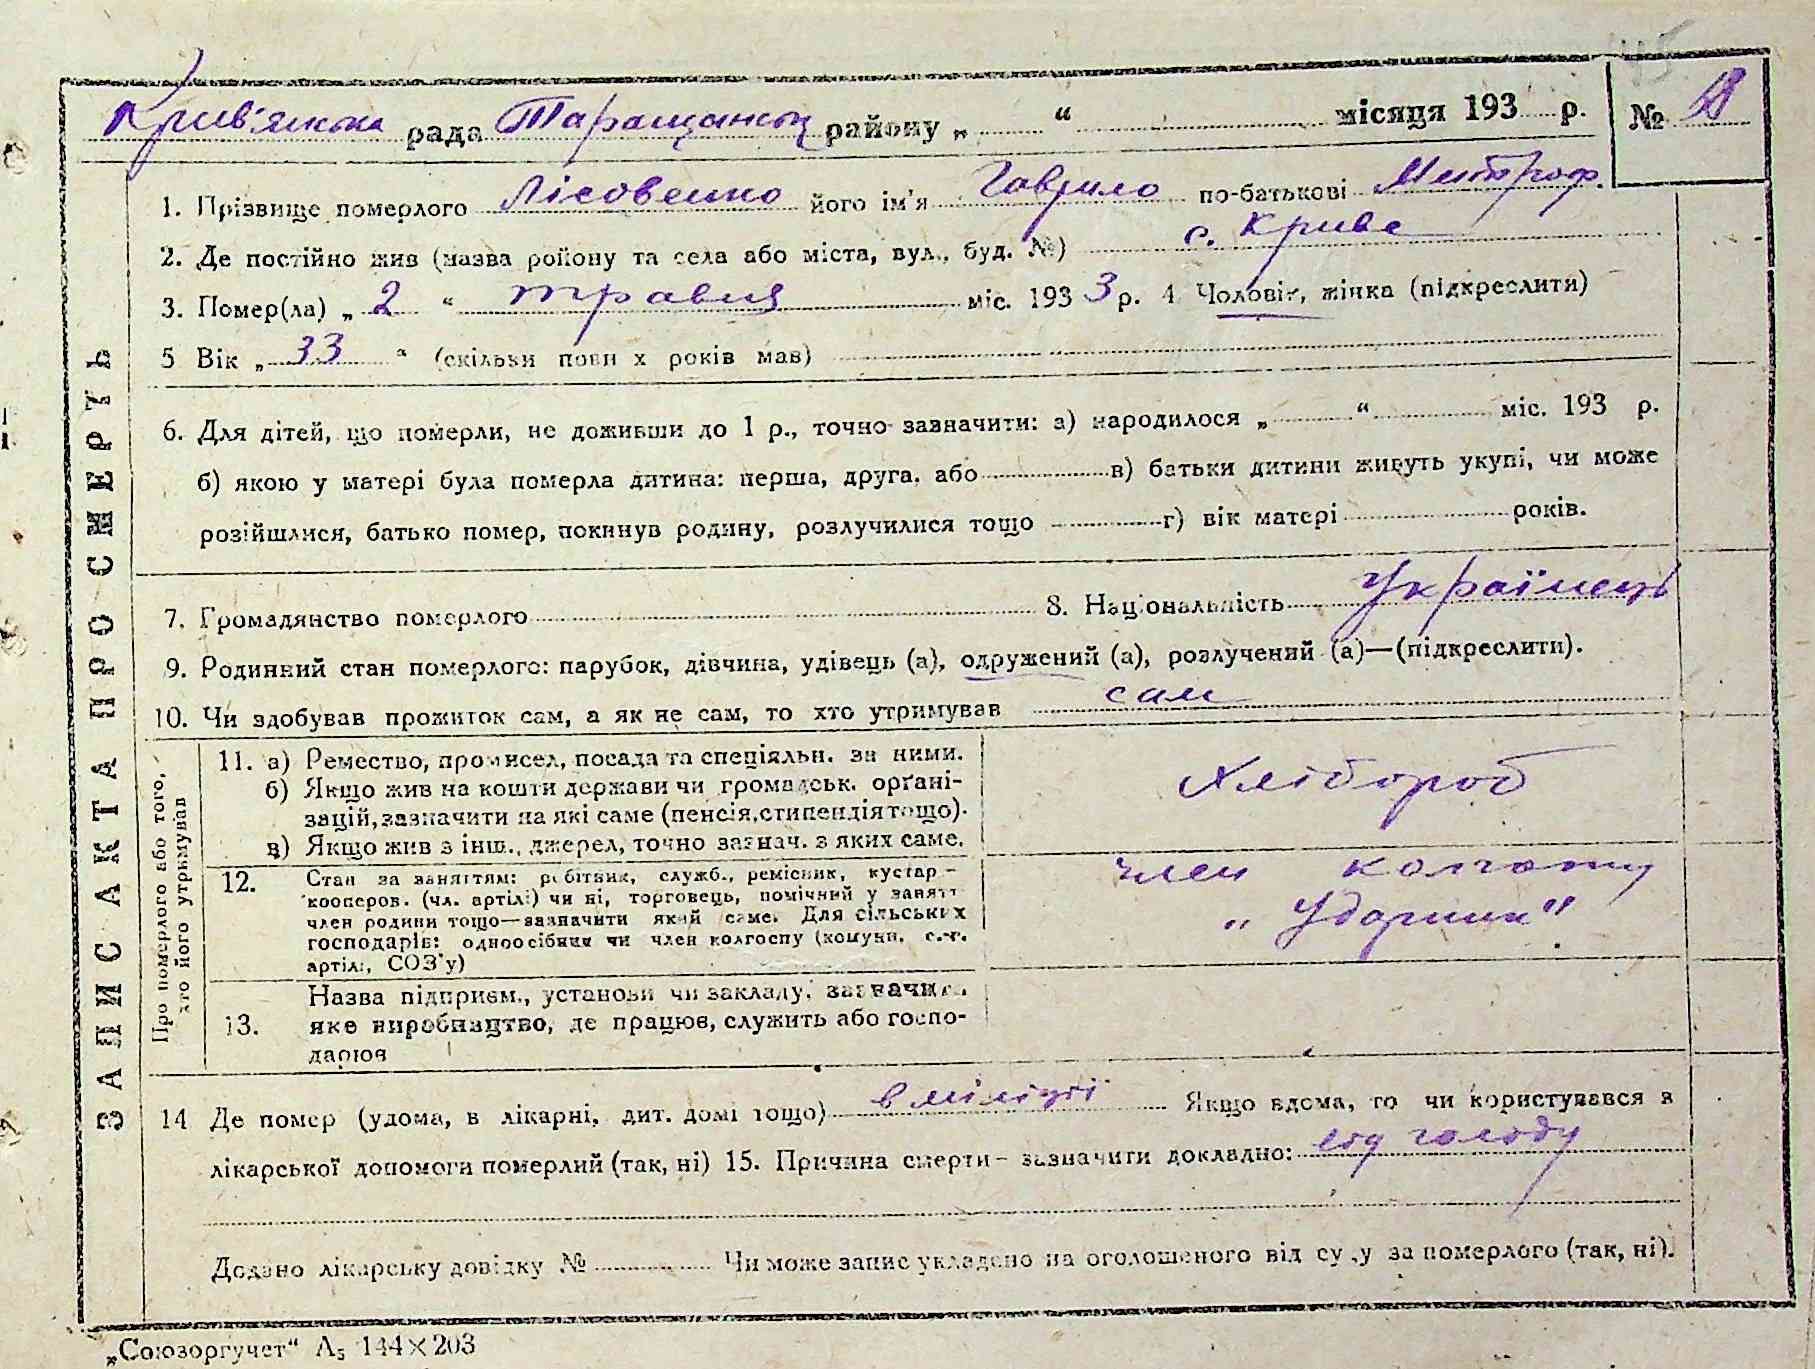 Крив'янська рада Таращанськ району „ “ місяця 193 р. №
1. Прізвище померлого Лісовенко його ім'я Гаврило по-батькові Митроф.
2. Де постійно жив (назва району та села або міста, вул., буд. №) с. Криве
3. Помер(ла) „ 2 “ травня міс. 193 3 р. 4 Чоловік, жінка (підкреслити)
5 Вік „ 33 “ (скільки повних років мав)
6. Для дітей, що померли, не доживши до 1 р., точно зазначити: а) народилося „ “ міс. 193 р.
б) якою у матері була померла дитина: перша, друга, або в) батьки дитини живуть укупі, чи може
розійшлися, батько помер, покинув родину, розлучилися тощо г) вік матері років.
7. Громадянство померлого 8. Національність Українець
9. Родинний стан померлого: парубок, дівчина, удівець (а), одружений (а), розлучений (а)—(підкреслити).
10. Чи здобував прожиток сам, а як не сам, то хто утримував сам
11. а) Ремество, промисел, посада та спеціяльн. за ними.
б) Якщо жив на кошти держави чи громадськ. органі-
зацій, зазначити на які саме (пенсія, стипендія тощо).
в) Якщо жив з інш., джерел, точно зазнач. з яких саме.
Хлібороб
12. Стан за заняттям: робітник, служб., ремісник, кустар-
кооперов. (чл. артілі) чи ні, торговець, помічний у занятт
член родини тощо—зазначити який саме. Для сільських
господарів: одноосібник чи член колгоспу (комуни, с.-г.
артілі, СОЗ'у)
член колгоспу
„Ударник"
13. Назва підприєм., установи чи закладу, зазначити
яке виробництво, де працює, служить або госпо-
дарює
14 Де помер (удома, в лікарні, дит. домі тощо) в міліції Якщо вдома, то чи користувався з
лікарської допомоги померлий (так, ні) 15. Причина смерти – зазначити докладно: від голоду
Додано лікарську довідку № Чи може запис укладено на оголошеного від суду за померлого (так, ні).
ЗАПИС АКТА ПРО СМЕРТЬ
Про померлого або того,
хто його утримував
„Союзоргучет“ А₅ 144×203